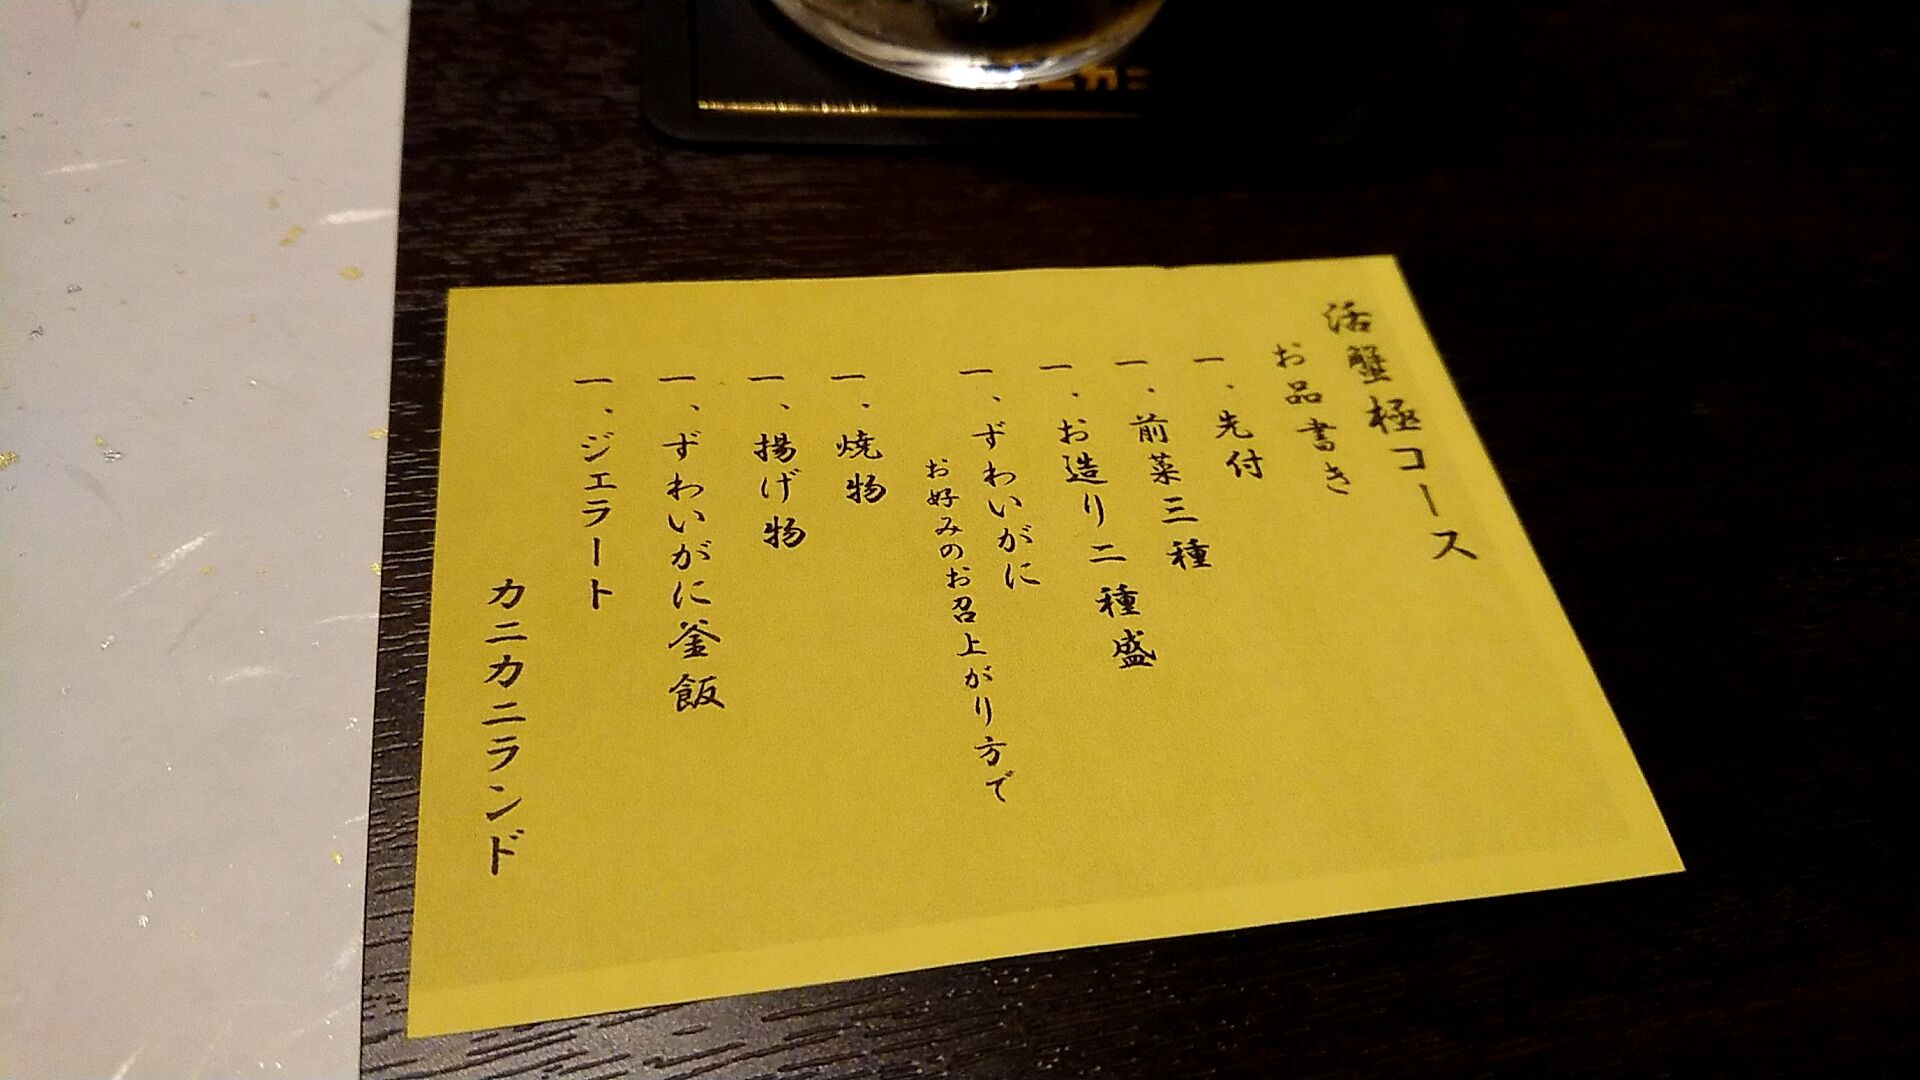 活蟹極コース
お品書き
一、先付
一、前菜三種
一、お造り二種盛
一、ずわいがに
お好みのお召上がり方で
一、焼物
一、揚げ物
一、ずわいがに釜飯
一、ジェラート
カニカニランド